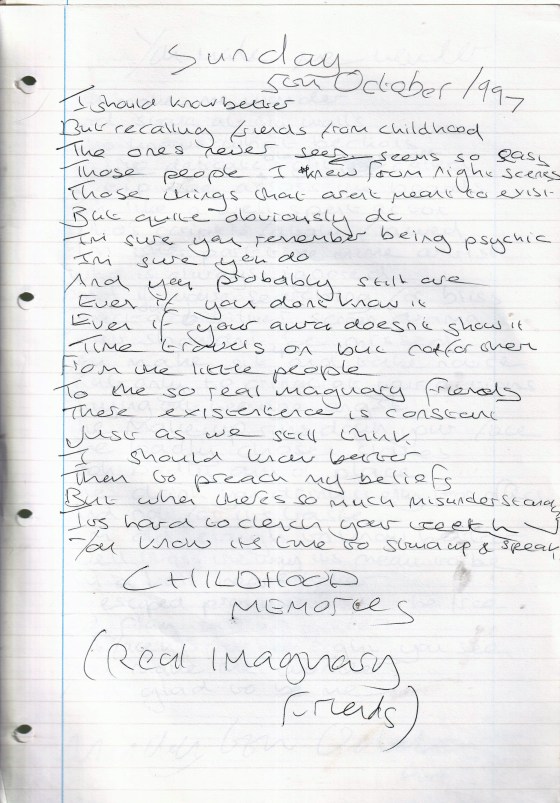 Sunday
5th October 1997
I should know better
But recalling friends from childhood
The ones never seen seems so easy
Those people I knew from night scenes
Those things that arent meant to exist
But quite obviously do
Im sure you remember being psychic
Im sure you do
And you probably still are
Even if you dont know it
Even if your aura doesnt show it
Time travels on but not for them
From the little people
To the so real imaginary friends
There existentence is constant
Just as we still think
I should know better
Then to preach my beliefs
But when theres so much misunderstanding
Its hard to clench your teeth
You know its time to stand up & speak
CHILDHOOD
MEMORIES
(Real Imaginary
friends)